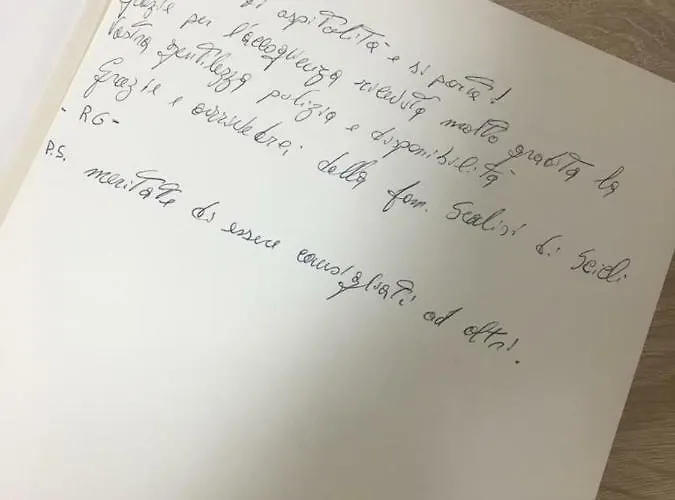 di ospitalità e di pona!
Grazie per l'accoglienza ricevuta molto gradita la
Vostra gentilezza pulizia e disponibilità
Grazie e arrivederci dalla fam. Scalisi di Scicli
- RG -
P.S. meritate di essere consigliati ad altri.